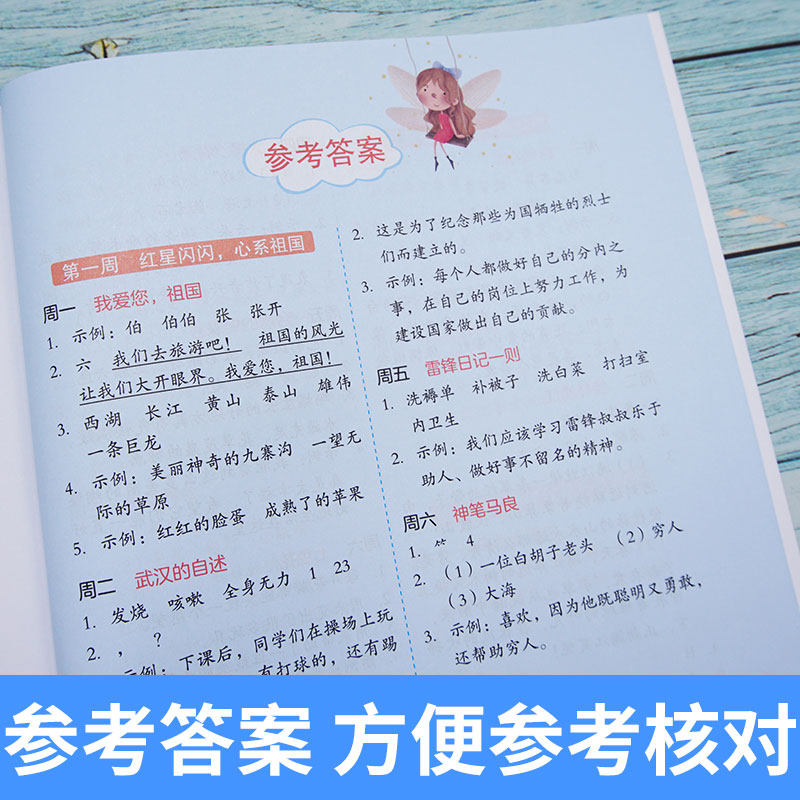 参考答案
第一周 红星闪闪，心系祖国
周一 我爱您，祖国
1. 示例：伯 伯伯 张 张开
2. 六 我们去旅游吧！ 祖国的风光
让我们大开眼界。我爱您，祖国！
3. 西湖 长江 黄山 泰山 雄伟
一条巨龙
4. 示例：美丽神奇的九寨沟 一望无
际的草原
5. 示例：红红的脸蛋 成熟了的苹果
周二 武汉的自述
1. 发烧 咳嗽 全身无力 1 23
2. ， ？
示例：下课后，同学们在操场上玩
有打球的，还有踢
2. 这是为了纪念那些为国牺牲的烈士
们而建立的。
3. 示例：每个人都做好自己的分内之
事，在自己的岗位上努力工作，为
建设国家做出自己的贡献。
周五 雷锋日记一则
1. 洗褥单 补被子 洗白菜 打扫室
内卫生
2. 示例：我们应该学习雷锋叔叔乐于
助人、做好事不留名的精神。
周六 神笔马良
1. ⺮ 4
2. （1）一位白胡子老头 （2）穷人
（3）大海
3. 示例：喜欢，因为他既聪明又勇敢，
还帮助穷人。
参考答案 方便参考核对